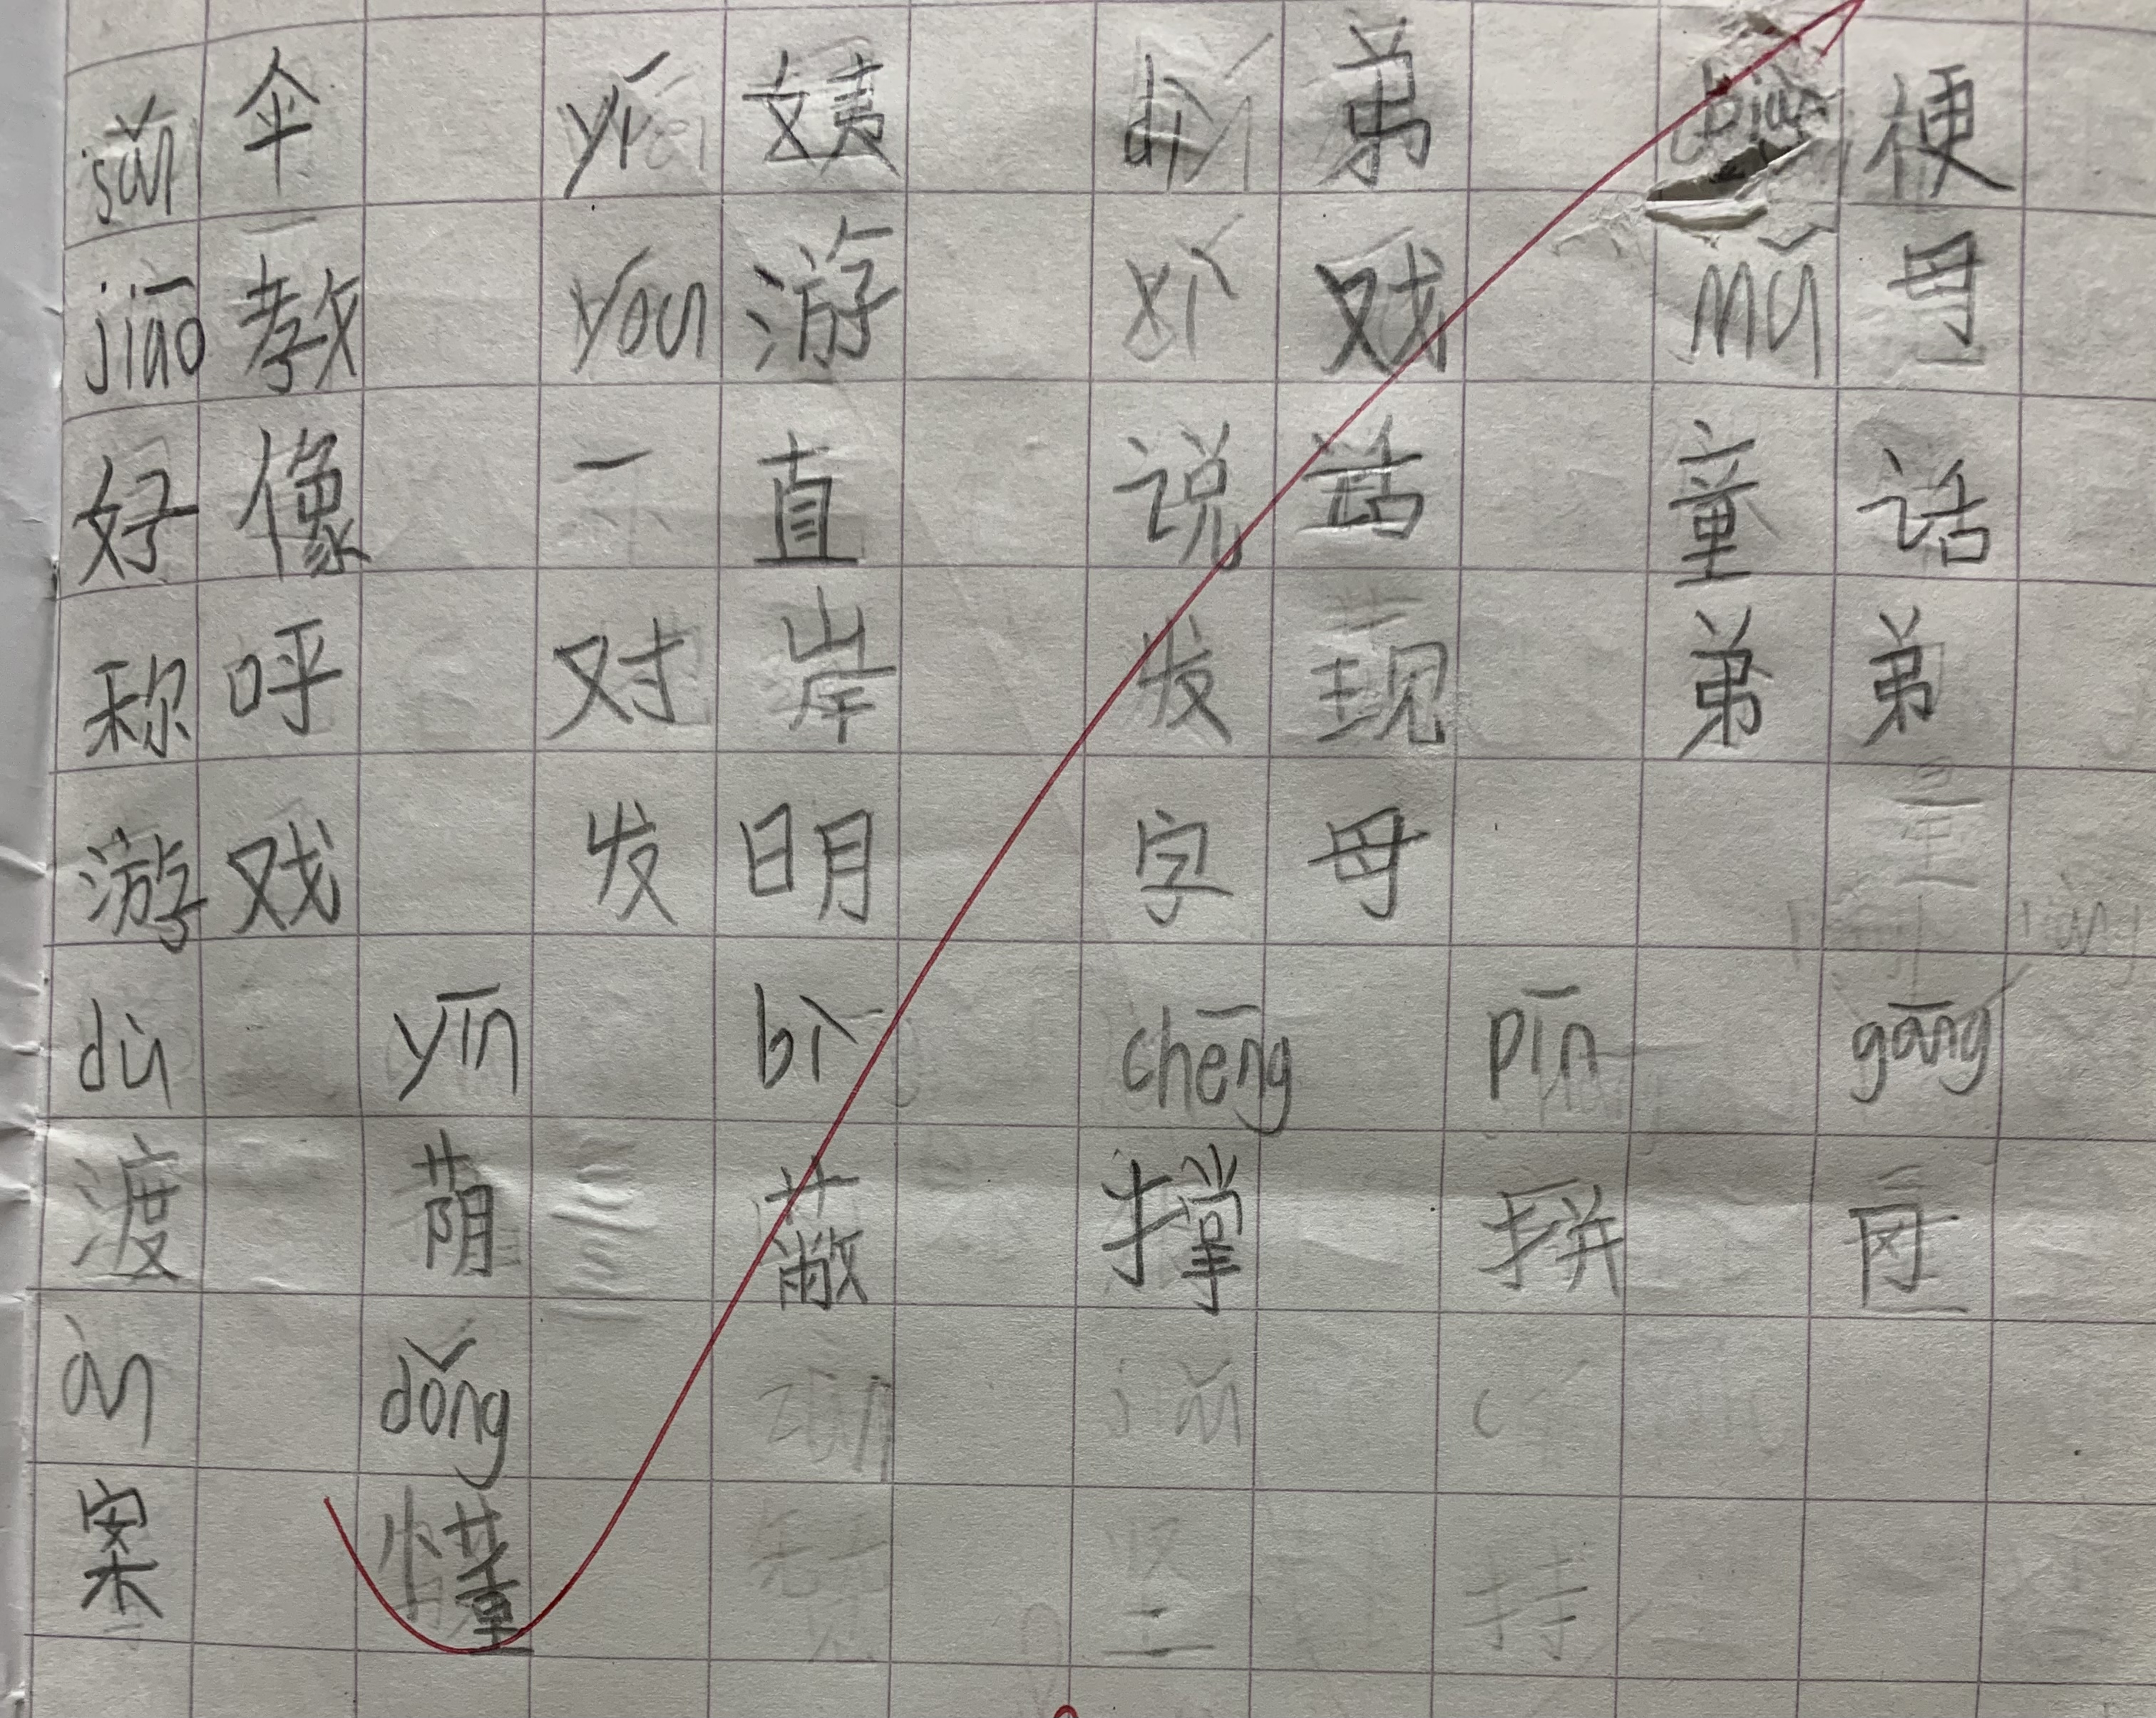 sǎn 伞 yí 姨 dì 弟 biàn 梗
jiāo 教 yóu 游 xì 戏 mǔ 母
好像 一直 说话 童话
称呼 对岸 发现 弟弟
游戏 发明 字母
dù yīn bì chēng pīn gāng
渡 荫 蔽 撑 拼
àn dǒng
案 懂